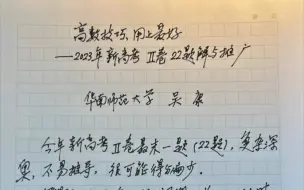 高数技巧,用上最好
——2023年新高考Ⅱ卷22题解与推广
华南师范大学 吴康
今年新高考Ⅱ卷最末一题(22题),复杂深
奥,不易推导,很可能得分偏少。